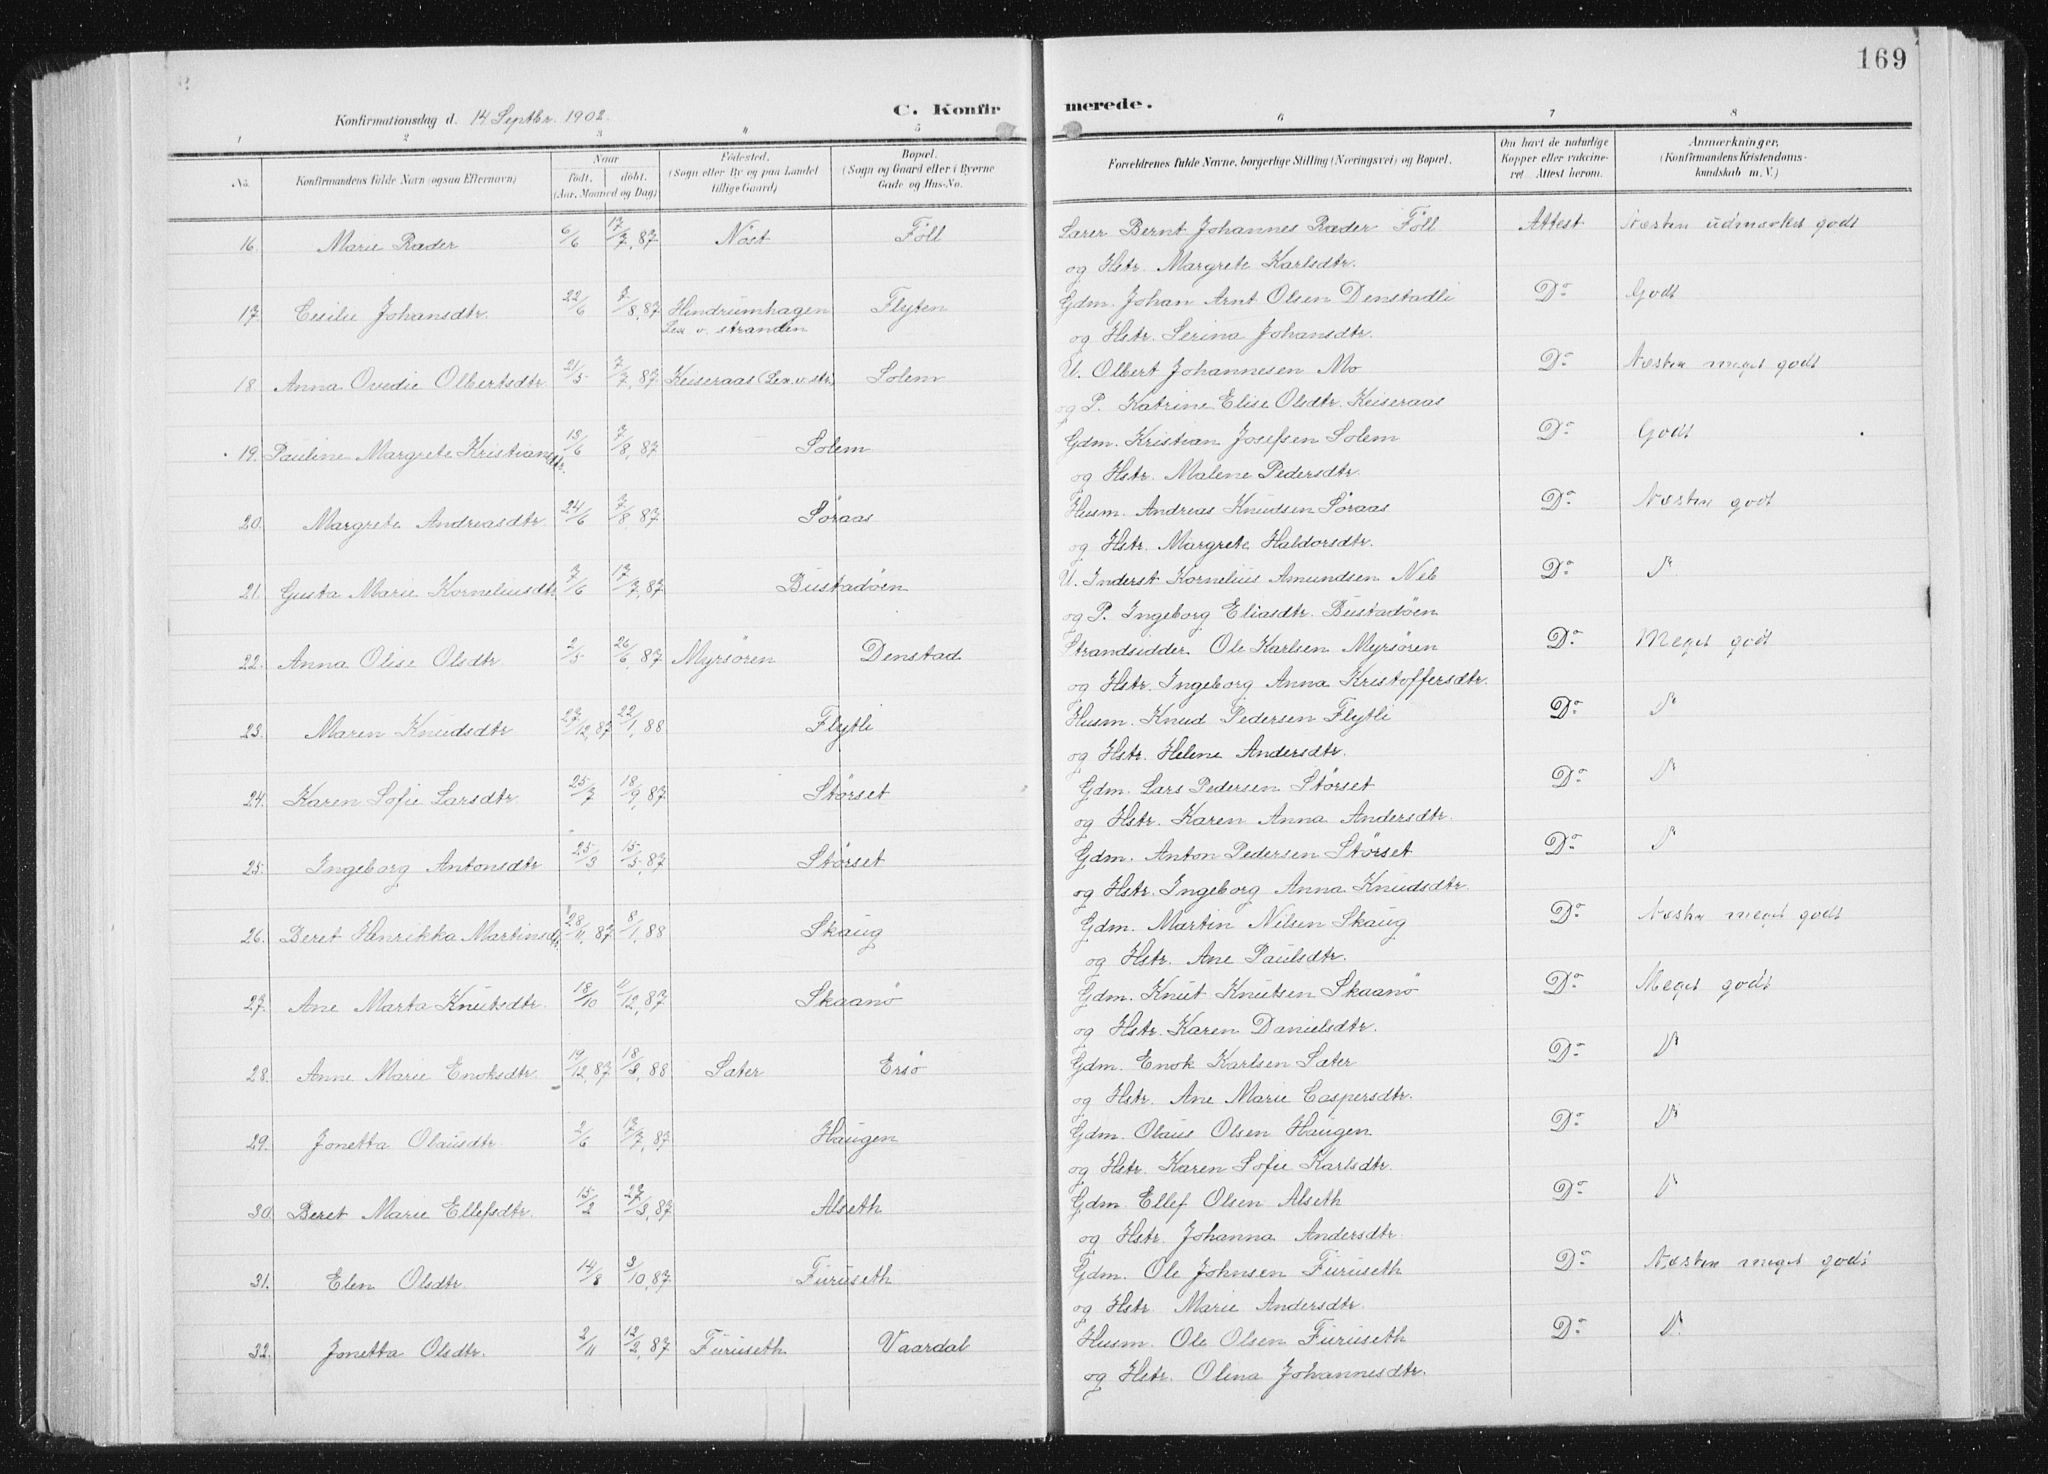 169
Konfirmationsdag d. 14 Septbr. 1902.
C. Konfirmerede.
1 2 3 4 5 6 7 8
No. Konfirmandens fulde Navn (ogsaa Efternavn) Naar født. døbt. (Aar, Maaned og Dag) Fødested. (Sogn eller By og paa Landet tillige Gaard) Bopæl. (Sogn og Gaard eller i Byerne Gade og Hus-No. Forældrenes fulde Navne, borgerlige Stilling (Næringsvei) og Bopæl. Om havt de naturlige Kopper eller vakcineret. Attest herom. Anmærkninger, (Konfirmandens Kristendomskundskab m. V.)
16. Marie Ræder 6/6 17/7, 87 Nöst Föll Lærer Bernt Johannes Ræder Föll Attest Næsten udmærket godt
og Hstr. Margrete Karlsdtr.
17. Cecilie Johansdtr. 22/6 7/8, 87 Hindrumhagen Flyten Gdm. Johan Arnt Olsen Denstadli Do Godt
Lex. v. stranden og Hstr. Serina Johansdtr.
18 Anna Ovedie Olbertsdtr. 21/5 7/7, 87 Keiseraas (Lex. v. str.) Solem U. Olbert Johannesen Mo Do Næsten meget godt
og P. Katrine Elise Olsdtr. Keiseraas
19. Pauline Margrete Kristiansdtr. 15/6 7/8, 87 Solem Gdm. Kristian Josefsen Solem Do Godt
og Hstr. Malene Pedersdtr.
20. Margrete Andreasdtr. 24/6 7/8, 87 Söraas Husm. Andreas Knudsen Söraas Do Næsten godt
og Hstr. Margrete Haldorsdtr.
21. Gusta Marie Korneliusdtr. 7/6 17/7, 87 Bustadöen U. Inderst Kornelius Amundsen Neb Do
og P. Ingeborg Eliasdtr. Bustadöen
22. Anna Olise Olsdtr. 2/5 26/6, 87 Myrsören Denstad Strandsidder Ole Karlsen Myrsören Do Meget godt
og Hstr. Ingeborg Anna Kristoffersdtr.
23. Maren Knudsdtr 27/12, 87 22/1, 88 Flytli Husm. Knud Pedersen Flytli Do
og Hstr. Helene Andersdtr.
24. Karen Sofie Larsdtr. 25/7 18/9, 87 Störset Gdm. Lars Pedersen Störset Do
og Hstr. Karen Anna Andersdtr.
25. Ingeborg Antonsdtr 25/3 15/5, 87 Störset Gdm. Anton Pedersen Störset Do
og Hstr. Ingeborg Anna Knudsdtr.
26. Beret Henrikka Martinsdtr. 28/11, 87 8/1, 88 Skaug Gdm. Martin Nilsen Skaug Do Næsten meget godt
og Hstr. Ane Paulsdtr.
27. Ane Marta Knutsdtr. 18/10 11/12, 87 Skaanö Gdm. Knut Knutsen Skaanö Do Meget godt
og Hstr. Karen Danielsdtr.
28. Anne Marie Enoksdtr. 19/12, 87 18/3, 88 Sæter Ersö Gdm. Enok Karlsen Sæter Do
og Hstr. Ane Marie Caspersdtr.
29. Jonetta Olausdtr. 2/6 17/7, 87 Haugen Gdm. Olaus Olsen Haugen Do
og Hstr. Karen Sofie Karlsdtr.
30. Beret Marie Ellefsdtr. 15/2 27/3, 87 Alseth Gdm. Ellef Olsen Alseth Do
og Hstr. Johanna Andersdtr.
31. Elen Olsdtr. 14/8 3/10, 87 Furuseth Gdm. Ole Johnsen Furuseth Do Næsten meget godt
og Hstr. Marie Andersdtr.
32. Jonetta Olsdtr. 2/11 12/2, 87 Furuseth Vaardal Husm. Ole Olsen Furuseth Do
og Hstr. Olina Johannesdtr.